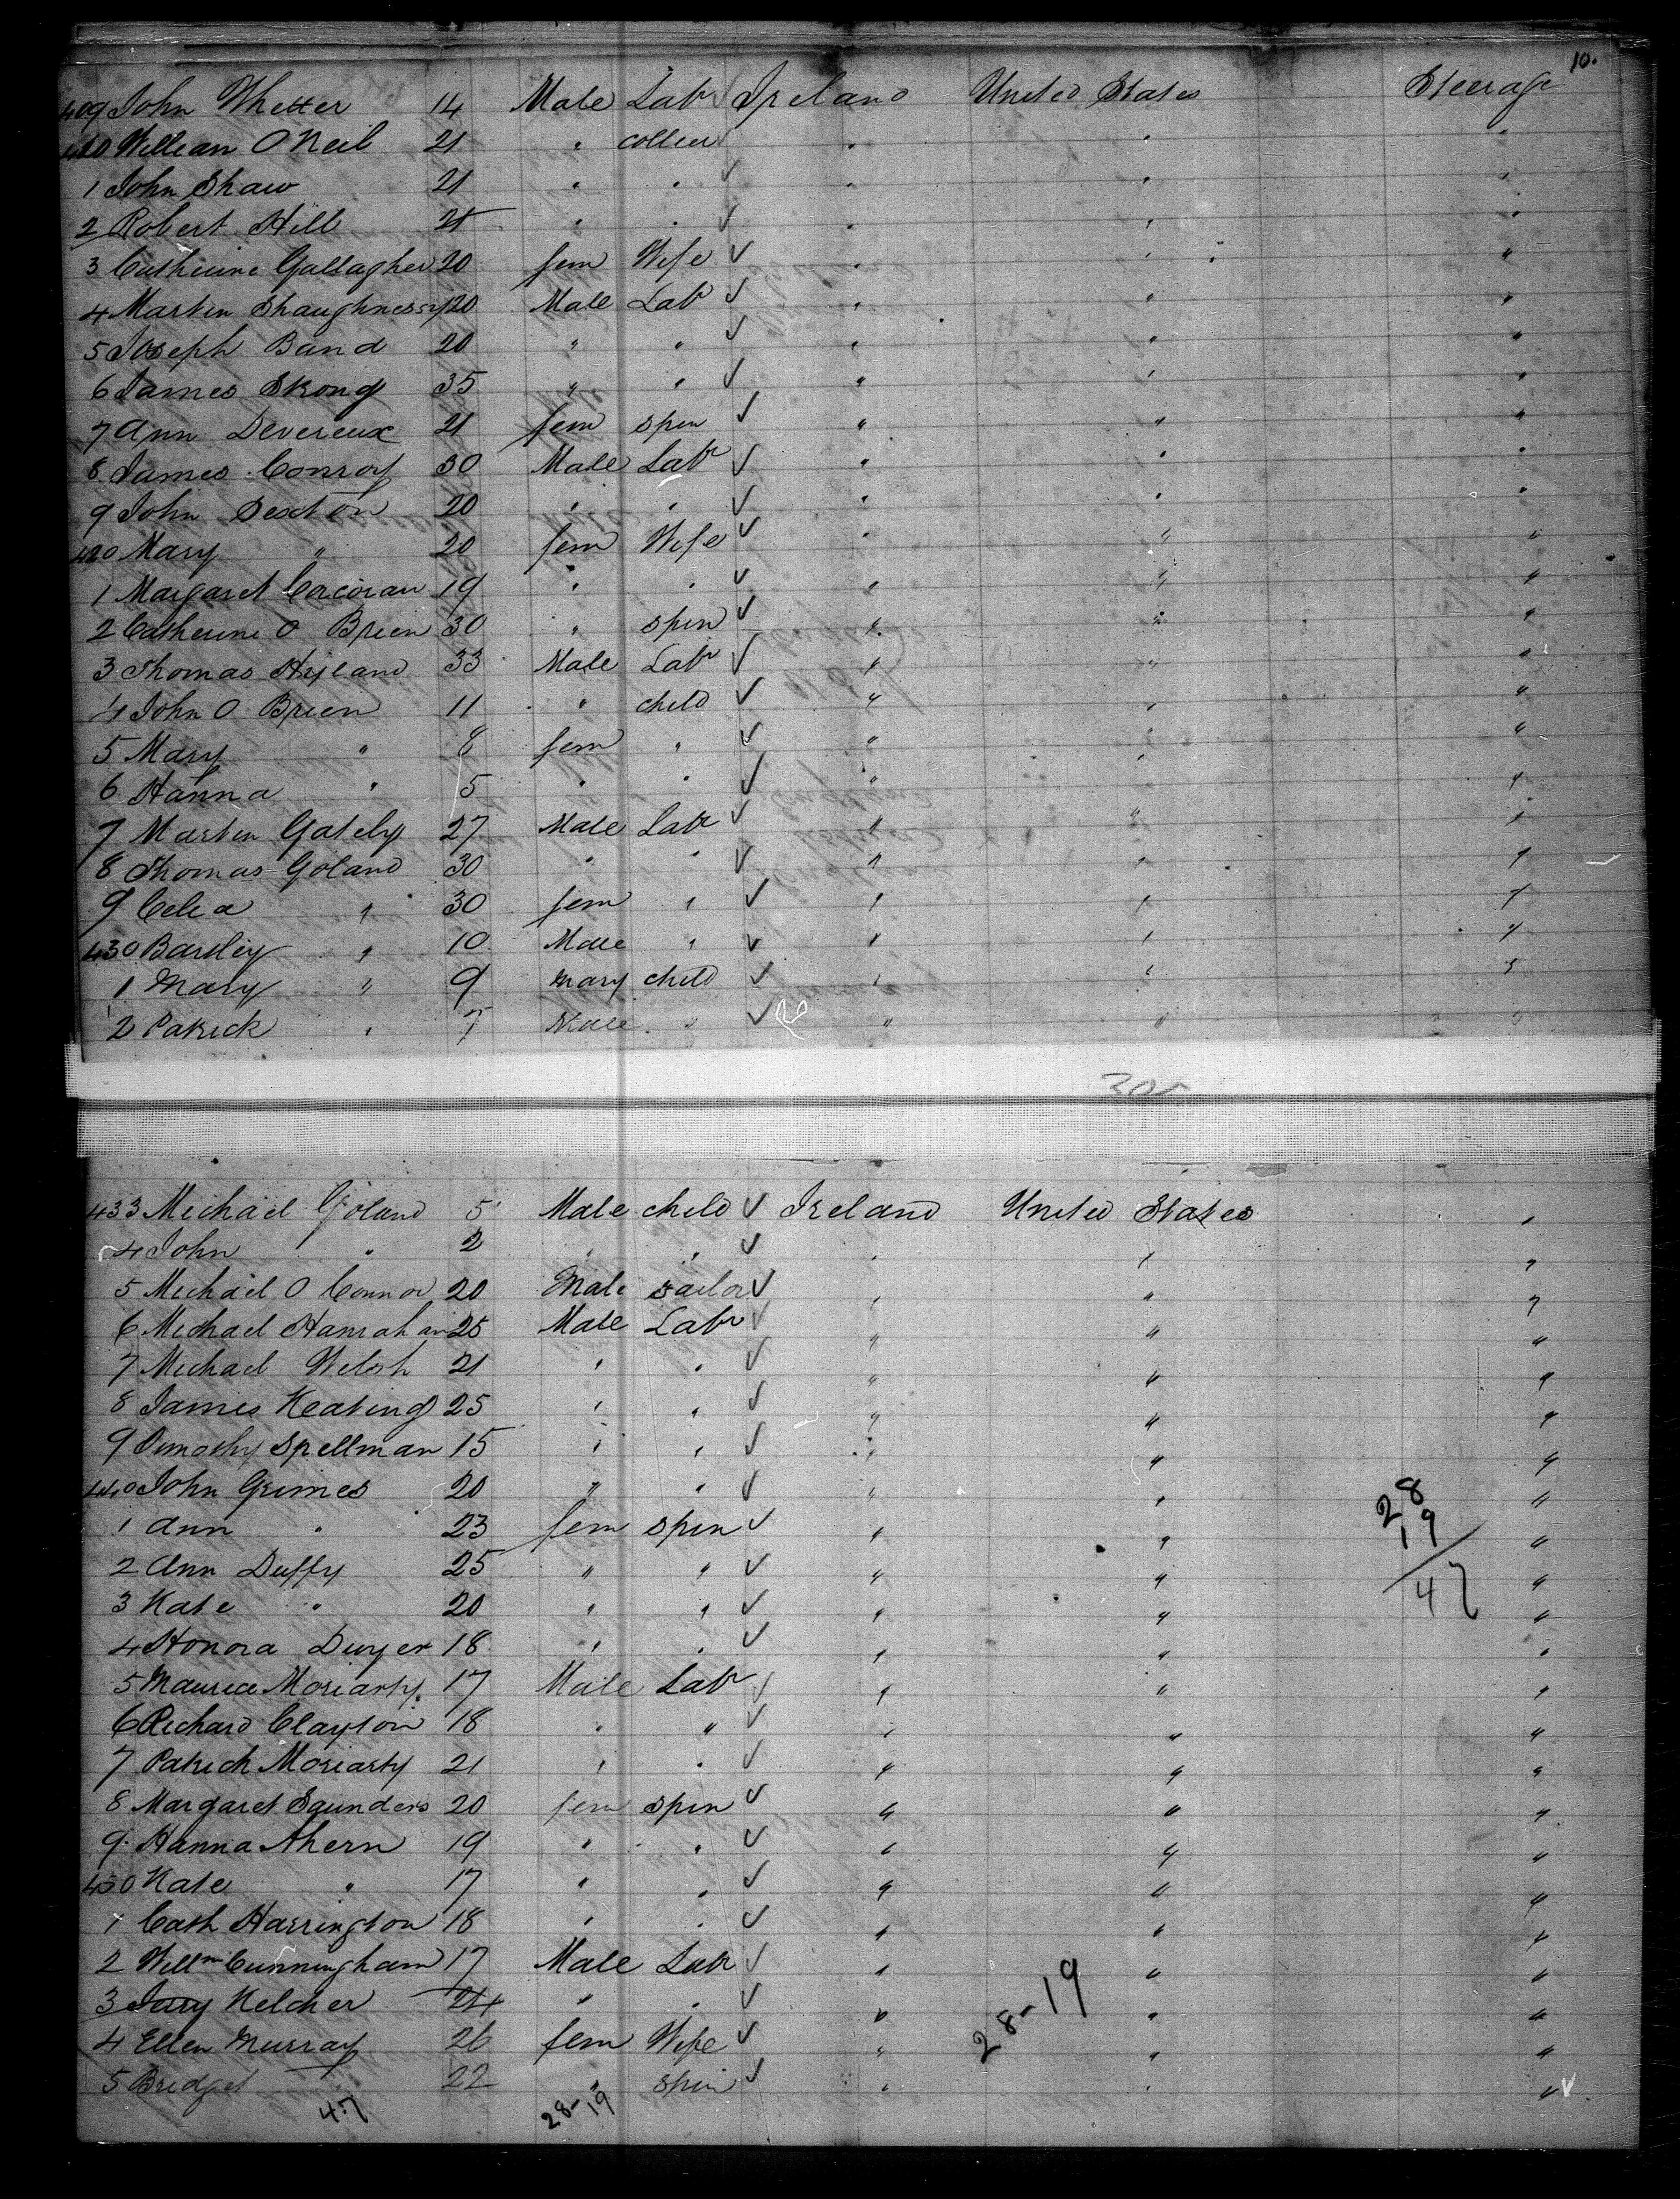 10.
409 John Whetter 14 Male Labr Ireland United States Steerage
410 William O Neil 21 " collier " " "
1 John Shaw 21 " " " " "
2 Robert Hill 21 " " " " "
3 Catherine Gallagher 20 fem Wife " " "
4 Martin Shaughnessy 20 Male Labr " " "
5 Joseph Band 20 " " " " "
6 James Strong 35 " " " " "
7 Ann Devereux 21 fem spin " " "
8 James Conroy 30 Male Labr " " "
9 John Sexton 20 " " " " "
420 Mary " 20 fem Wife " " "
1 Margaret Corcoran 19 " " " " "
2 Catherine O Brien 30 " spin " " "
3 Thomas Hyland 33 Male Labr " " "
4 John O Brien 11 " child " " "
5 Mary " 8 fem " " " "
6 Hanna " 5 " " " " "
7 Martin Gately 27 Male Labr " " "
8 Thomas Goland 30 " " " " "
9 Celia " 30 fem " " " "
430 Bartley " 10 Male " " " "
1 Mary " 9 Mary child " " "
2 Patrick " 7 Male " " " "
433 Michael Goland 5 Male child Ireland United States "
4 John " 2 " " " " "
5 Michael O Connor 20 Male sailor " " "
6 Michael Hanrahan 25 Male Labr " " "
7 Michael Welsh 21 " " " " "
8 James Keating 25 " " " " "
9 Timothy Spellman 15 " " " " "
440 John Grimes 20 " " " " "
1 Ann " 23 fem spin " " "
2 Ann Duffy 25 " " " " "
3 Kate " 20 " " " " "
4 Honora Dwyer 18 " " " " "
5 Maurice Moriarty 17 Male Labr " " "
6 Richard Clayton 18 " " " " "
7 Patrick Moriarty 21 " " " " "
8 Margaret Saunders 20 fem spin " " "
9 Hanna Ahern 19 " " " " "
450 Kate " 17 " " " " "
1 Cath Harrington 18 " " " " "
2 Willm Cunningham 17 Male Labr " " "
3 Kelcher 24 " " " " "
4 Ellen Murray 26 fem Wife " " "
5 Bridget " 22 " spin " " "
28
19
47
28-19
47 28-19